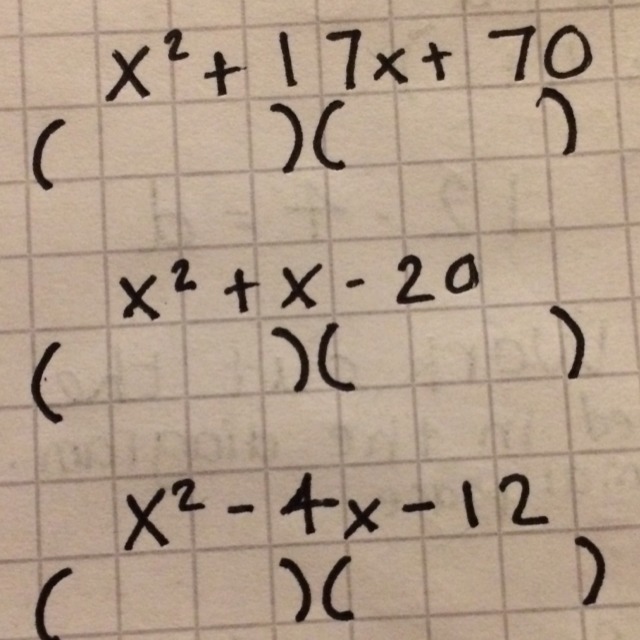 x² + 17x + 70
( )( )
x² + x - 20
( )( )
x² - 4x - 12
( )( )